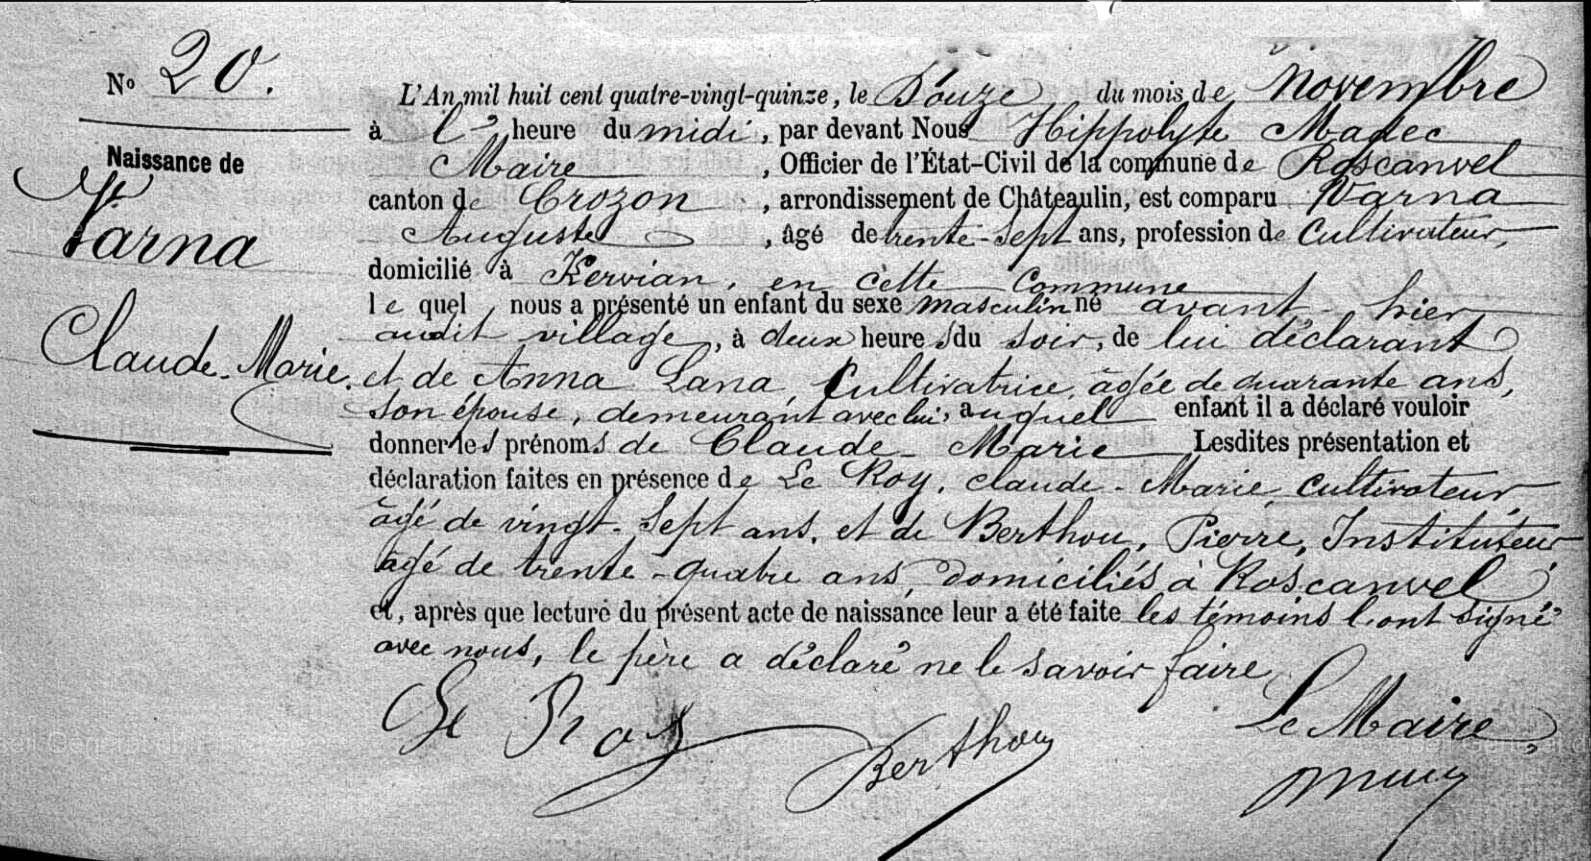 No 20.
Naissance de
Varna
Claude-Marie.
L'An mil huit cent quatre-vingt-quinze, le Douze du mois de Novembre
à l' heure du midi, par devant Nous Hippolyte Madec
Maire, Officier de l'État-Civil de la commune de Roscanvel
canton de Crozon, arrondissement de Châteaulin, est comparu Varna
Auguste, âgé de trente-sept ans, profession de Cultivateur,
domicilié à Kervian, en cette Commune
lequel nous a présenté un enfant du sexe masculin né avant-hier
audit village, à deux heures du soir, de lui déclarant
et de Anna Lana, Cultivatrice, âgée de quarante ans,
son épouse, demeurant avec lui, auquel enfant il a déclaré vouloir
donner les prénoms de Claude-Marie Lesdites présentation et
déclaration faites en présence de Le Roy, Claude-Marie, Cultivateur
âgé de vingt-sept ans, et de Berthou, Pierre, Instituteur
âgé de trente-quatre ans, domiciliés à Roscanvel
et, après que lecture du présent acte de naissance leur a été faite les témoins l'ont signé
avec nous, le père a déclaré ne le savoir faire
Le Roy
Berthou
Le Maire,